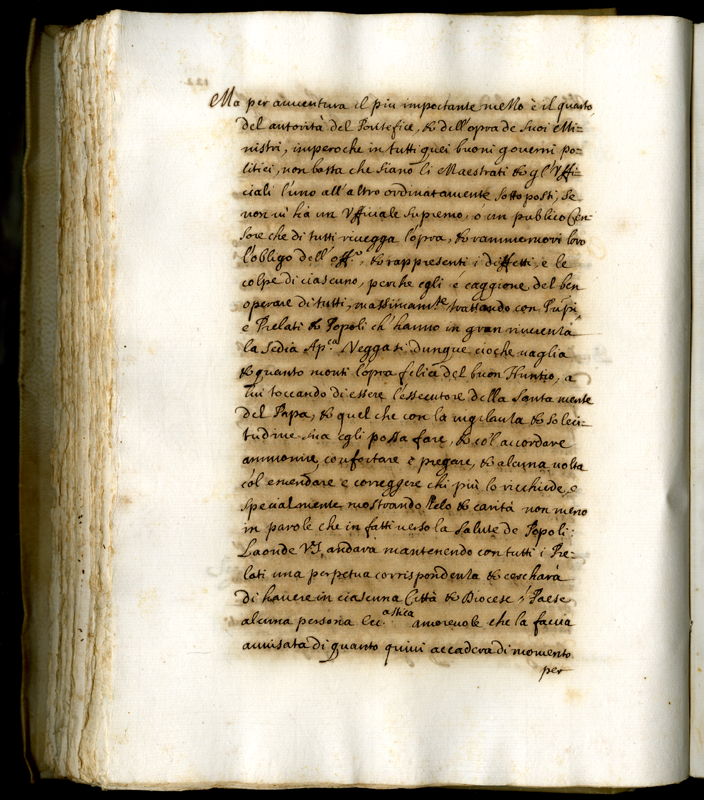 Ma per auuentura il piu importante mezzo è il quarto
del autorità del Pontefice, & dell'opra de Suoi Mi=
nistri, imperoche in tutti quei buoni governi po=
litici, non basta che siano li Maestrati & gl'Uffi=
ciali l'uno all'altro ordinatamente sottoposti, se
non ui hà un Ufficiale supremo, ó un publico Cen=
sore che di tutti riuegga l'opra, & rammemori loro
l'obligo dell'off.º, & rappresenti i diffetti, e le
colpe di ciascuno, perche egli é caggione del ben
operare di tutti, massimam.te trattando con Prípi,
e Prelati & Popoli ch'hanno in gran riuerenza
la Sedia Ap.ca Veggasi dunque cioche uaglia
& quanto monti l'opra felice del buon Huntio, a
lui toccando di essere l'essecutore della Santa mente
del Papa, & quel che con la uigilanza & soleci=
tudine sua egli possa fare, & co'l accordare
ammonire, confortare e pregare, & alcuna uolta
co'l emendare e correggere chi più lo ricchiede, e
specialmente mostrando Zelo & carità non meno
in parole che in fatti uerso la salute de Popoli:
Laonde V.S. andara mantenendo con tutti i Pre=
lati una perpetua corrispondenza & cercharà
di hauere in ciascuna Città & Diocese, ó Paese
alcuna persona Ecc.astica amoreuole che la faccia
auuisata di quanto quiui accaderà di momento
per